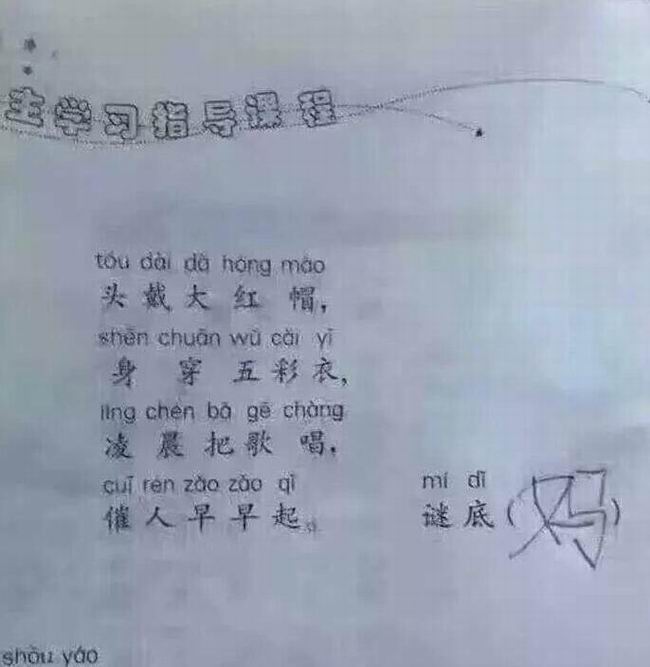 主学习指导课程
tóu dài dà hóng mào
头戴大红帽，
shēn chuān wǔ cǎi yī
身穿五彩衣，
líng chén bǎ gē chàng
凌晨把歌唱，
cuī rén zǎo zǎo qǐ
催人早早起。
mí dǐ
谜底(妈)
shòu yáo